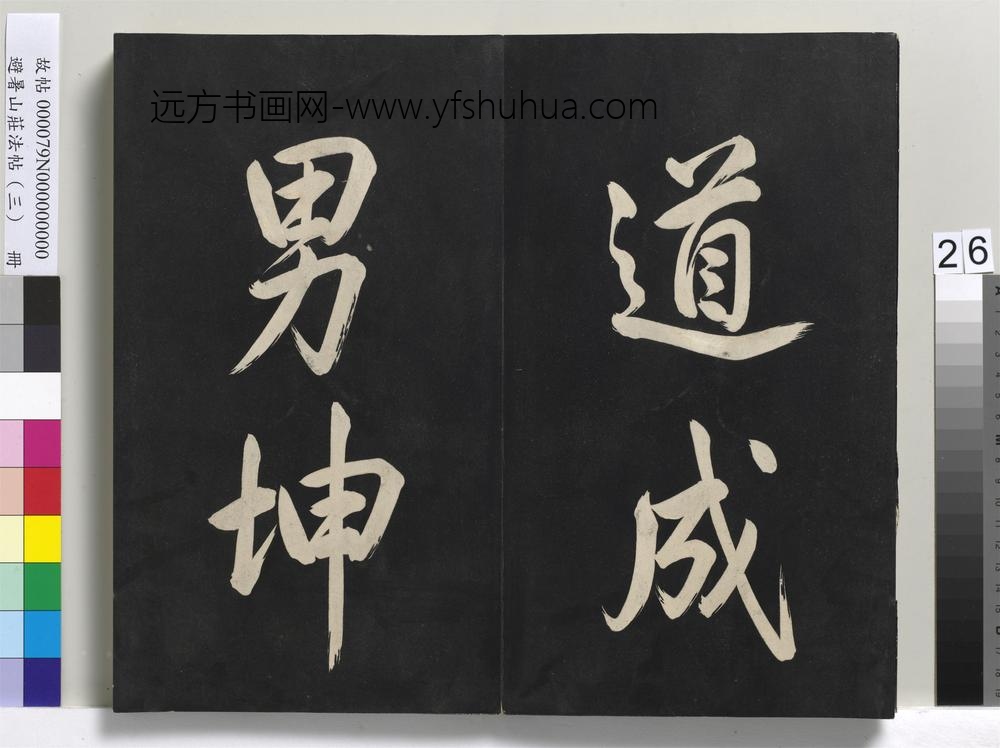 道成
男坤
远方书画网-www.yfshuhua.com
故帖 000079N000000000
避暑山莊法帖（三） 冊
26